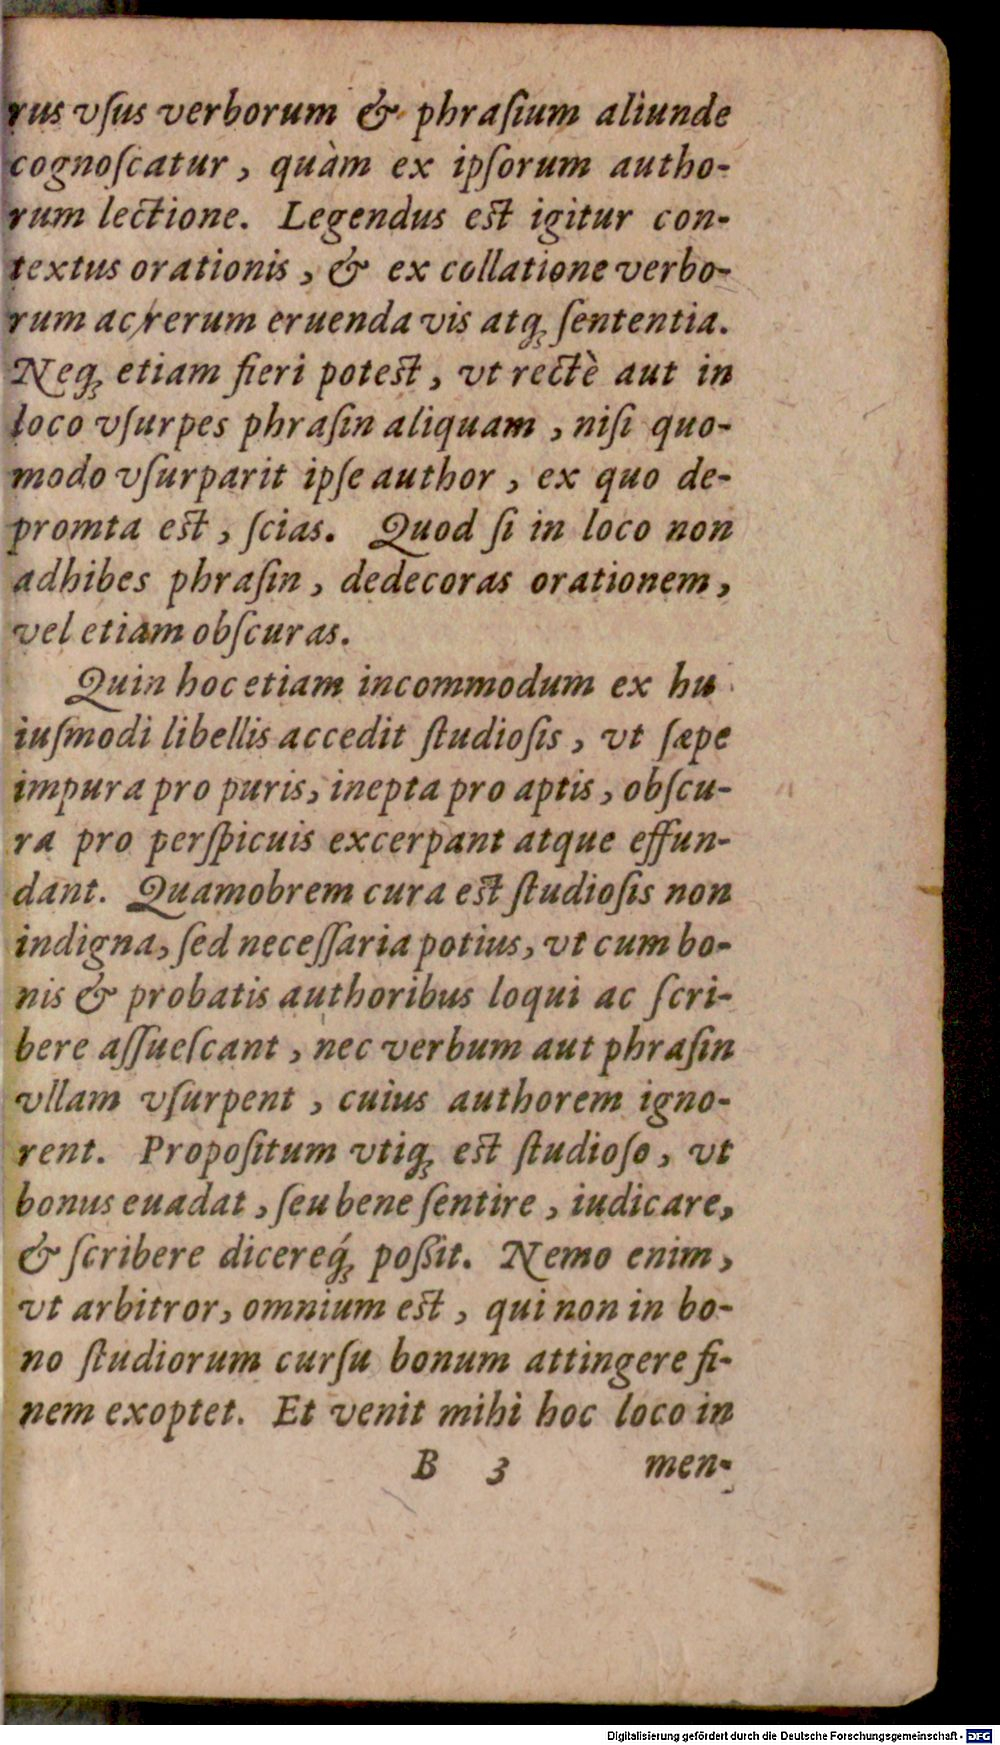 rus vſus verborum & phraſium aliunde
cognoſcatur, quàm ex ipſorum autho-
rum lectione. Legendus est igitur con-
textus orationis, & ex collatione verbo-
rum ac rerum eruenda vis atq; ſententia.
Neq; etiam fieri potest, vt rectè aut in
loco vſurpes phraſin aliquam, niſi quo-
modo vſurparit ipſe author, ex quo de-
promta est, ſcias. Quod ſi in loco non
adhibes phraſin, dedecoras orationem,
vel etiam obſcuras.
Quin hoc etiam incommodum ex hu
iuſmodi libellis accedit ſtudioſis, vt ſæpe
impura pro puris, inepta pro aptis, obſcu-
ra pro perſpicuis excerpant atque effun-
dant. Quamobrem cura est ſtudioſis non
indigna, ſed neceſſaria potius, vt cum bo-
nis & probatis authoribus loqui ac ſcri-
bere aſſueſcant, nec verbum aut phraſin
vllam vſurpent, cuius authorem igno-
rent. Propoſitum vtiq; est ſtudioſo, vt
bonus euadat, ſeu bene ſentire, iudicare,
& ſcribere dicereq́; poßit. Nemo enim,
vt arbitror, omnium est, qui non in bo-
no ſtudiorum curſu bonum attingere fi-
nem exoptet. Et venit mihi hoc loco in
B 3 men-
Digitalisierung gefördert durch die Deutsche Forschungsgemeinschaft - DFG